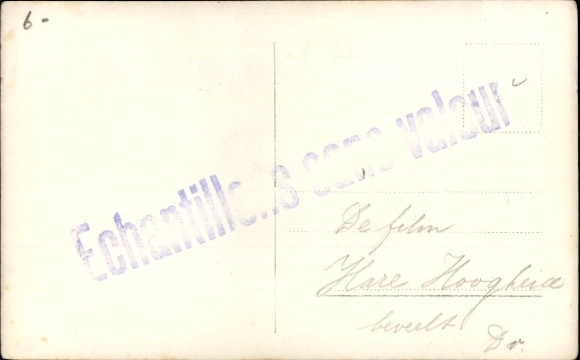 6-
Echantillons sans valeur
De film
Hare Hoogheid
beveelt
D v.